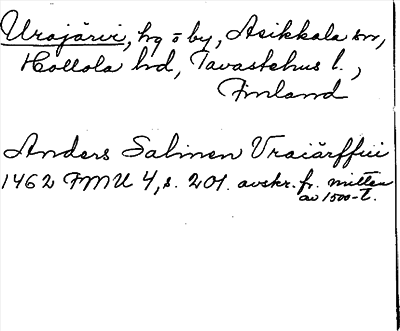 Urajärvi, hg o by, Asikkala sn,
Hollola hd, Tavastehus l.,
Finland
Anders Salmen Vraiärffui
1462 FMU 4, s. 201. avskr. fr. mitten
av 1500-t.